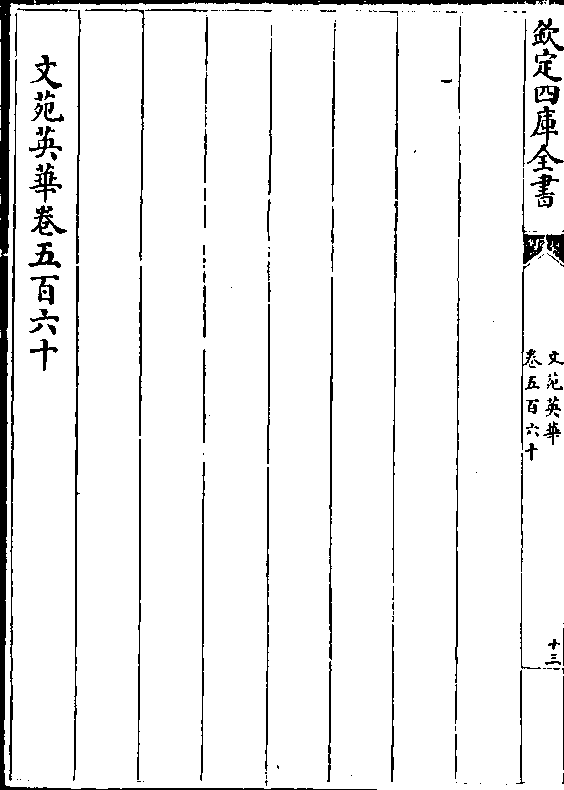 欽定四庫全書
文苑英華
卷五百六十
十三
文苑英華卷五百六十